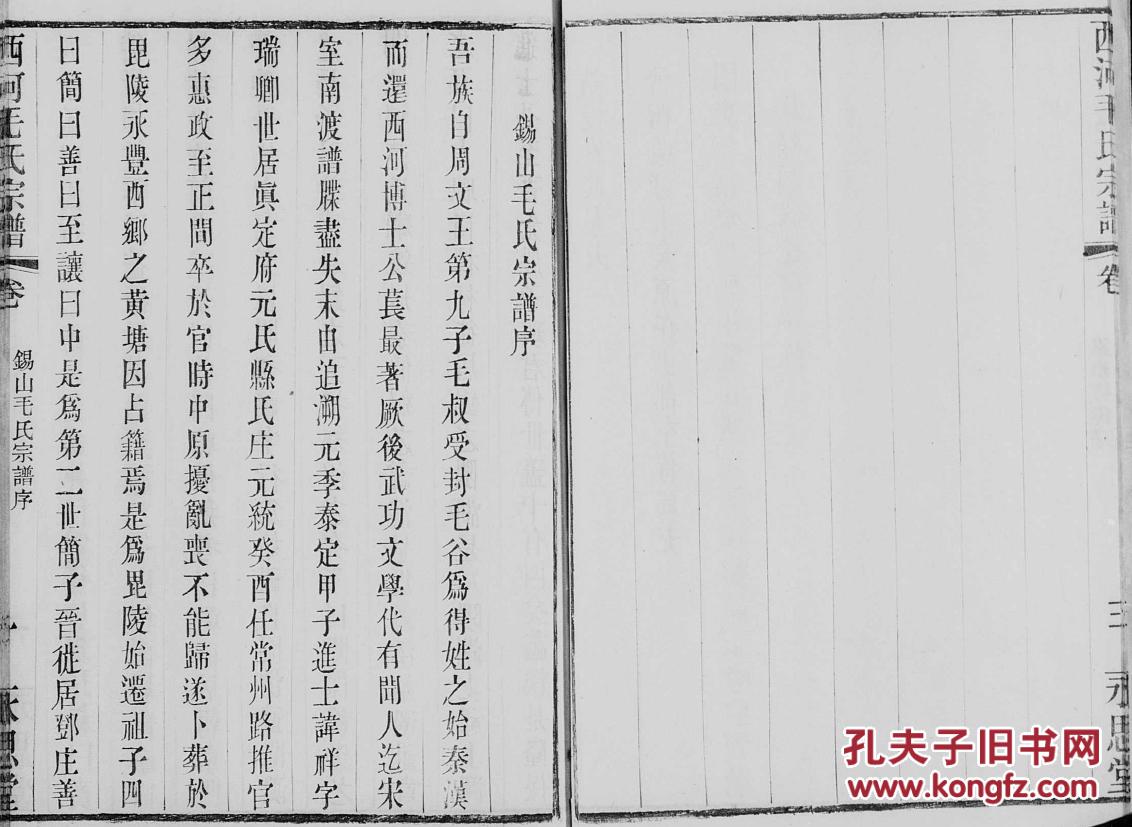 西河毛氏宗譜
卷
三
永思堂
錫山毛氏宗譜序
吾族自周文王第九子毛叔受封毛谷爲得姓之始秦漢
而還西河博士公萇最著厥後武功文學代有聞人迄宋
室南渡譜牒盡失末由追溯元季泰定甲子進士諱祥字
瑞卿世居眞定府元氏縣氏庄元統癸酉任常州路推官
多惠政至正間卒於官時中原擾亂喪不能歸遂卜葬於
毘陵永豐西鄉之黄塘因占籍焉是爲毘陵始遷祖子四
曰簡曰善曰至讓曰中是爲第二世簡子晉徙居鄧庄善
西河毛氏宗譜
卷
錫山毛氏宗譜序
一
永思堂
孔夫子旧书网
www.kongfz.com